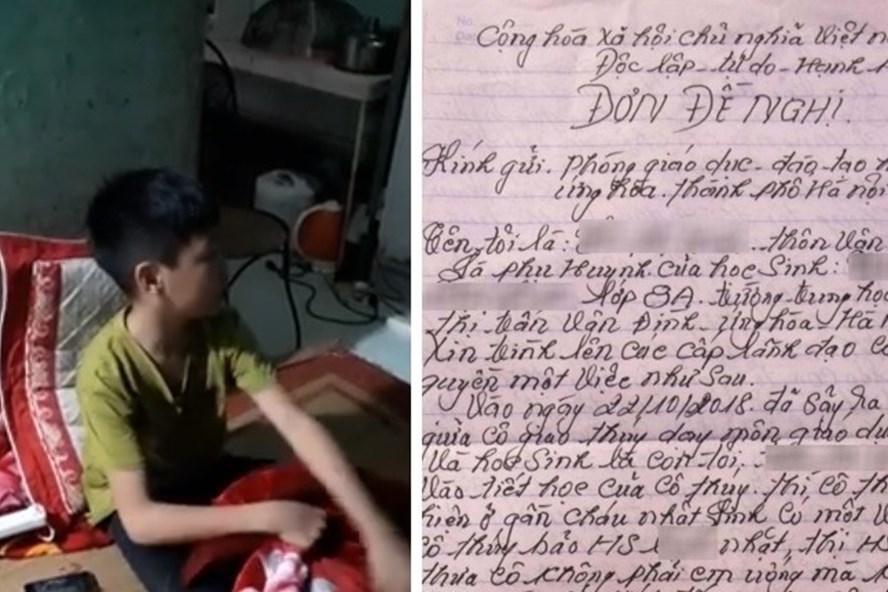 Cộng hóa xã hội chủ nghĩa Việt n
Độc lập - tự do - Hạnh
ĐƠN ĐỀ NGHỊ.
Kính gửi. Phòng giáo dục - đào tạo
ứng hòa. thành phố Hà nội
Tên tôi là: thôn Vân
Là phụ Huynh của học Sinh:
lớp 8A. trường trung học
thị trấn Vân Đình - ứng hòa - Hà
Xin trình lên các cấp lãnh đạo
quyền một việc như Sau.
Vào ngày 22/10/2018. đã Sảy ra
giữa cô giáo thúy dạy môn giáo dục
Và học Sinh là con tôi,
Vào tiết học của cô thúy. thì cô
hiện ở gần cháu nhất Sinh có một
cô thúy bảo HS nhặt, thì
thưa cô không phải em uống mà